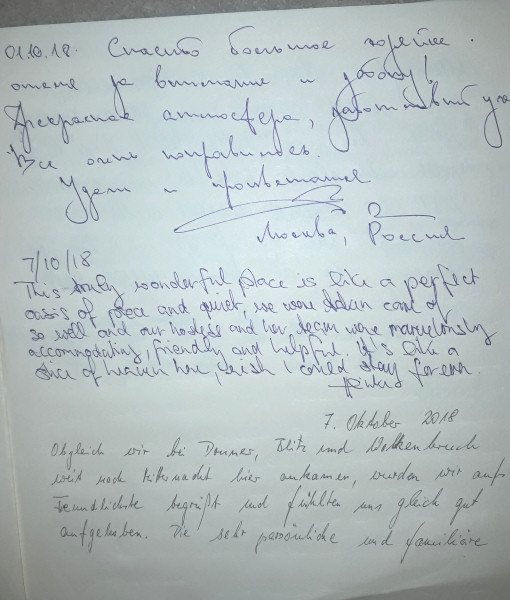 01.10.18. Спасибо большое хозяйке
отеля за внимание и заботу!
Прекрасная атмосфера, заботливый
Все очень понравилось.
Удачи и процветания
Москва, Россия
7/10/18
This truly wonderful place is like a perfect
oasis of peace and quiet, we were taken care of
so well and our hostess and her team were marvelously
accommodating, friendly and helpful. It's like a
slice of heaven here, wish I could stay forever.
7. Oktober 2018
Obgleich wir bei Donner, Blitz und Wolkenbruch
weit nach Mitternacht hier ankamen, wurden wir aufs
Freundlichste begrüßt und fühlten uns gleich gut
aufgehoben. Die sehr persönliche und familiäre